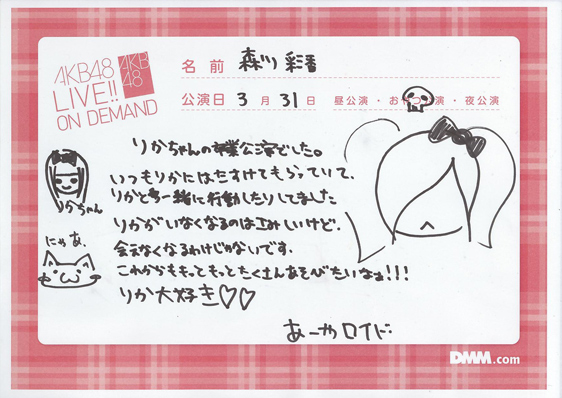 AKB48
LIVE!!
ON DEMAND
AKB
48
名前 森川 彩香
公演日 3月31日 昼公演・おやつ公演・夜公演
りかちゃんの卒業公演でした。
いつもりかにはたすけてもらっていて、
りかと一緒に行動したりしてました
りかがいなくなるのはさみしいけど、
会えなくなるわけじゃないです。
これからももっともっとたくさんあそびたいなぁ!!!
りか大好き♡♡
あーやロイド
りかちゃん
にゃあ、
DMM.com